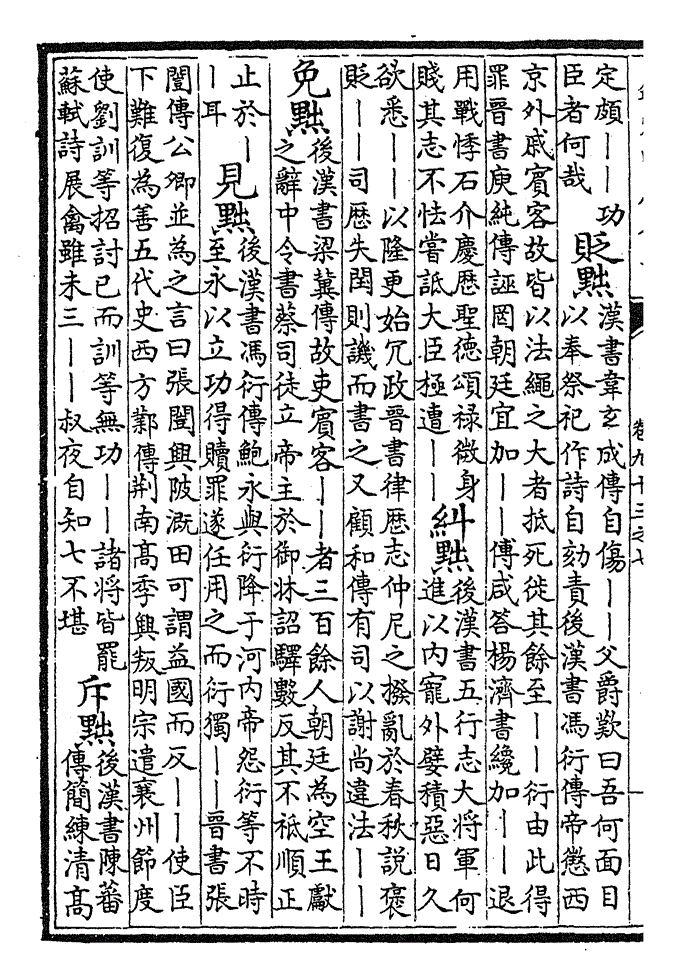 定頗｜｜功
臣者何哉
貶黜
漢書韋玄成傳自傷｜｜父爵歎曰吾何面目
以奉祭祀作詩自劾責後漢書馮衍傳帝懲西
京外戚賓客故皆以法繩之大者抵死徙其餘至｜｜衍由此得
罪晉書庾純傳誣罔朝廷宜加｜｜傅咸答楊濟書纔加｜｜退
用戰悸石介慶歷聖德頌祿微身
賤其志不怯嘗詆大臣極遭｜｜
糾黜
後漢書五行志大將軍何
進以內寵外嬖積惡日久
欲悉｜｜以隆更始冗政晉書律歷志仲尼之撥亂於春秋說褒
貶｜｜司歷失閏則譏而書之又顧和傳有司以謝尚違法｜｜
免黜
後漢書梁冀傳故吏賓客｜｜者三百餘人朝廷為空王獻
之辭中令書蔡司徒立帝主於御牀詔驛數反其不祗順正
止於｜
｜耳
見黜
後漢書馮衍傳鮑永與衍降于河內帝怨衍等不時
至永以立功得贖罪遂任用之而衍獨｜｜晉書張
闓傳公卿並為之言曰張闓興陂溉田可謂益國而反｜｜使臣
下難復為善五代史西方鄴傳荆南高季興叛明宗遣襄州節度
使劉訓等招討已而訓等無功｜｜諸將皆罷
蘇軾詩展禽雖未三｜｜叔夜自知七不堪
斥黜
後漢書陳蕃
傳簡練清高